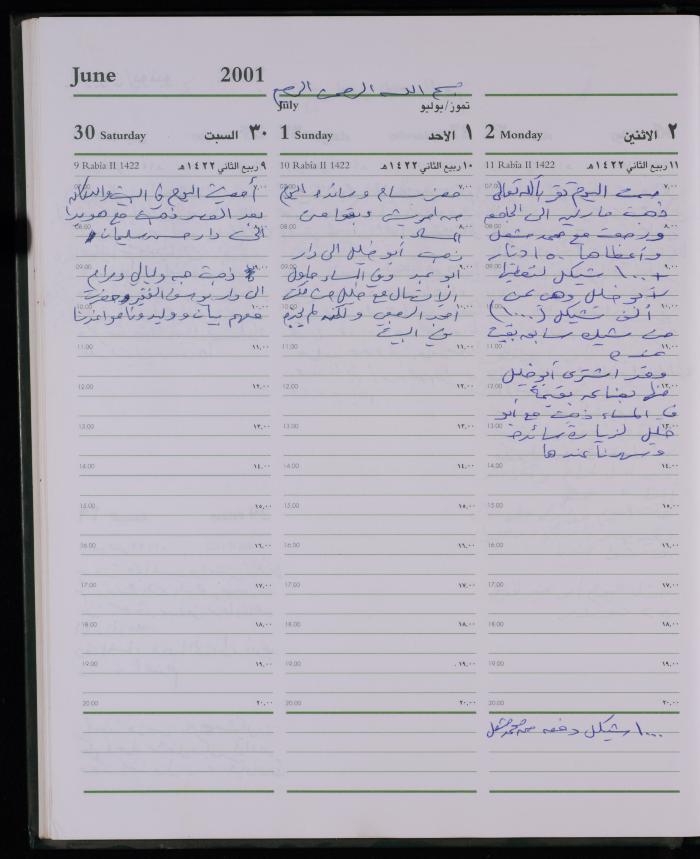 June 2001
بسم الله الرحمن الرحيم
July تموز/يوليو
30 Saturday السبت ٣٠
9 Rabia II 1422 ٩ ربيع الثاني ١٤٢٢هـ
أمضيت اليوم في البيت
بعد العصر ذهبت مع هويدا
الى دار حسن سلمان
ذهبت حبه وليالي ومرام
الى دار يوسف
معهم بيان ووليد
07.00 ٧,٠٠
08.00 ٨,٠٠
09.00 ٩,٠٠
10.00 ١٠,٠٠
11.00 ١١,٠٠
12.00 ١٢,٠٠
13.00 ١٣,٠٠
14.00 ١٤,٠٠
15.00 ١٥,٠٠
16.00 ١٦,٠٠
17.00 ١٧,٠٠
18.00 ١٨,٠٠
19.00 ١٩,٠٠
20.00 ٢٠,٠٠
1 Sunday الأحد ١
10 Rabia II 1422 ١٠ ربيع الثاني ١٤٢٢هـ
حضر بسام وسائده اليوم
المساء
ذهب أبو خليل الى دار
أبو عبد وفي المساء حاول
الإتصال مع خليل
أحمد ولكنه لم يجده
في البيت
08.00 ٨,٠٠
09.00 ٩,٠٠
10.00 ١٠,٠٠
11.00 ١١,٠٠
12.00 ١٢,٠٠
13.00 ١٣,٠٠
14.00 ١٤,٠٠
15.00 ١٥,٠٠
16.00 ١٦,٠٠
17.00 ١٧,٠٠
18.00 ١٨,٠٠
19.00 ١٩,٠٠
20.00 ٢٠,٠٠
2 Monday الاثنين ٢
11 Rabia II 1422 ١١ ربيع الثاني ١٤٢٢هـ
صمت اليوم تقرباً لله تعالى
ذهبت ماريا الى الجامعه
ورجعت مع محمد مشعل
وأعطاها ١٥٠ دينار
+ ١٠٠٠ شيكل لتعطيها
لأبو خليل وهي عن
ألف شيكل (١٠٠٠)
من شيك سابق بقيت
عنده
وقد اشترى أبو خليل
بضاعه بقيمة
في المساء ذهبت مع أبو
خليل لزيارة سائده
وسهرنا عندها
11.00 ١١,٠٠
12.00 ١٢,٠٠
13.00 ١٣,٠٠
14.00 ١٤,٠٠
15.00 ١٥,٠٠
16.00 ١٦,٠٠
17.00 ١٧,٠٠
18.00 ١٨,٠٠
19.00 ١٩,٠٠
20.00 ٢٠,٠٠
١٠٠٠ شيكل دفعه محمد مشعل